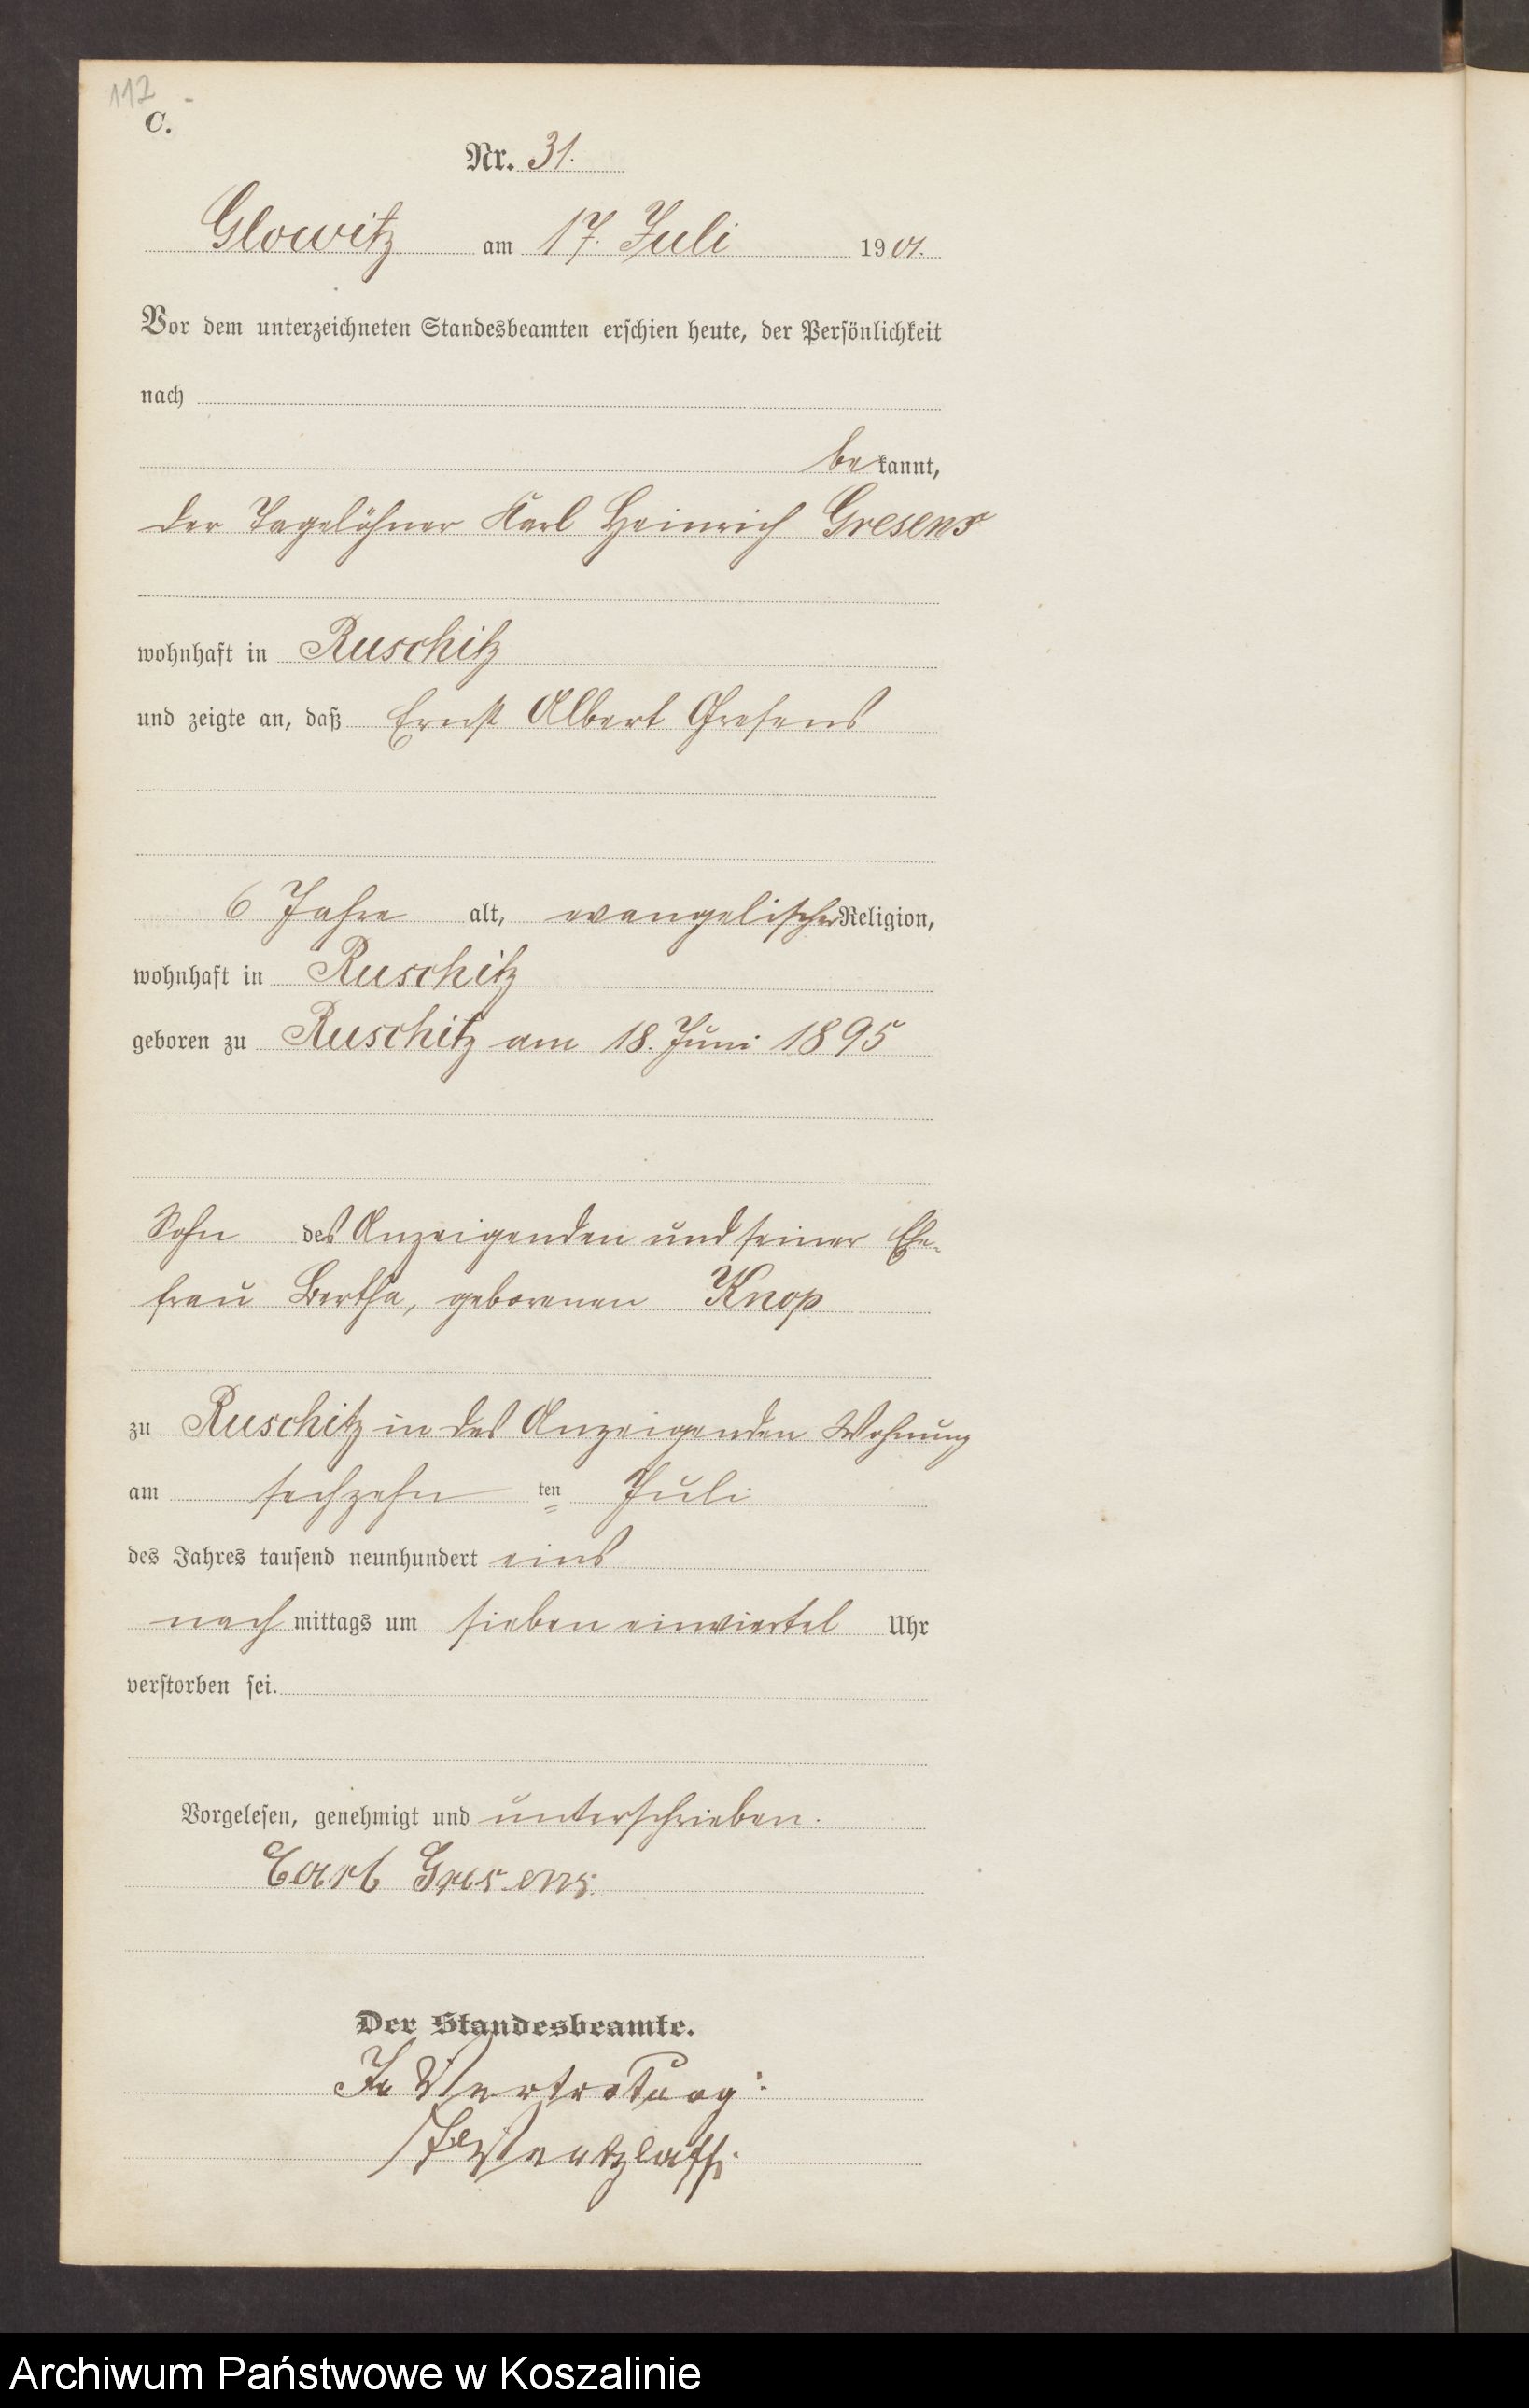 112
C.
Nr. 31.
Glowitz am 17. Juli 1901.
Vor dem unterzeichneten Standesbeamten erschien heute, der Persönlichkeit
nach
bekannt,
der Tagelöhner Karl Heinrich Gresens
wohnhaft in Ruschitz
und zeigte an, daß Ernst Albert Gresens
6 Jahre alt, evangelischer Religion,
wohnhaft in Ruschitz
geboren zu Ruschitz am 18. Juni 1895
Sohn des Anzeigenden und seiner Ehe-
frau Bertha, geborenen Knop
zu Ruschitz in des Anzeigenden Wohnung
am sechzehn ten Juli
des Jahres tausend neunhundert eins
nach mittags um sieben einviertel Uhr
verstorben sei.
Vorgelesen, genehmigt und unterschrieben.
Carl Gresens.
Der Standesbeamte.
In Vertretung:
Wentzlaff.
Archiwum Państwowe w Koszalinie